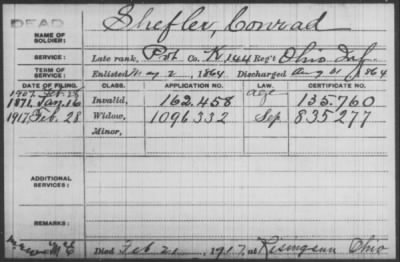 DEAD
NAME OF SOLDIER: Shefler, Conrad
SERVICE: Late rank, Pvt Co. K, 144 Reg't Ohio Inf.
TERM OF SERVICE: Enlisted May 2, 1864 Discharged Aug 31, 1864
DATE OF FILING. CLASS. APPLICATION NO. LAW. CERTIFICATE NO.
1907 Feb. age
1871. Jan. 16 Invalid, 162.458 135.760
1917 Feb. 28 Widow, 1096332 Sep 835277
Minor,
ADDITIONAL SERVICES:
REMARKS:
Died Feb 21, 1917, at Risingsun Ohio